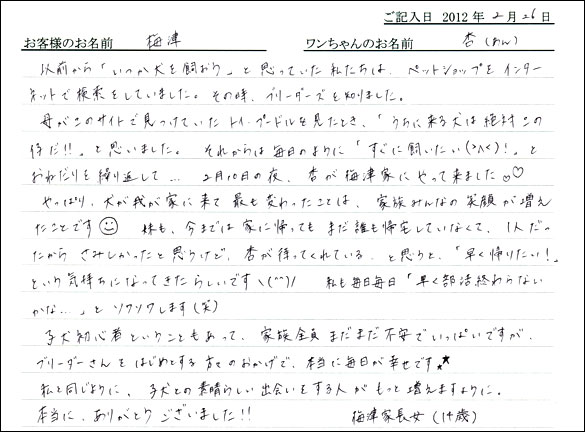 ご記入日 2012年2月26日
お客様のお名前 梅津 ワンちゃんのお名前 杏(あん)
以前から「いつか犬を飼おう」と思っていた私たちは、ペットショップをインター
ネットで検索をしていました。その時、ブリーダーズを知りました。
母がこのサイトで見つけていたトイ・プードルを見たとき、「うちに来る犬は絶対この
侍だ!!」と思いました。それからは毎日のように「すぐに飼いたい(>∧<)!」と
おねだりを繰り返して… 2月10日の夜、杏が梅津家にやって来ました♡♡
やっぱり、犬が我が家に来て最も変わったことは、家族みんなの笑顔が増え
たことです☺ 妹も、今までは家に帰ってもまだ誰も帰宅していなくて、1人だっ
たからさみしかったと思うけど、杏が待ってくれている、と思うと、「早く帰りたい!」
という気持ちになってきたらしいですヽ(^^)/ 私も毎日毎日「早く部活終わらない
かな…」とソワソワします(笑)
子犬初心者ということもあって、家族全員まだまだ不安でいっぱいですが、
ブリーダーさんをはじめとする方々のおかげで、本当に毎日が幸せです★★
私と同じように、子犬との素晴らしい出会いをする人がもっと増えますように。
本当に、ありがとうございました!! 梅津家長女(14歳)